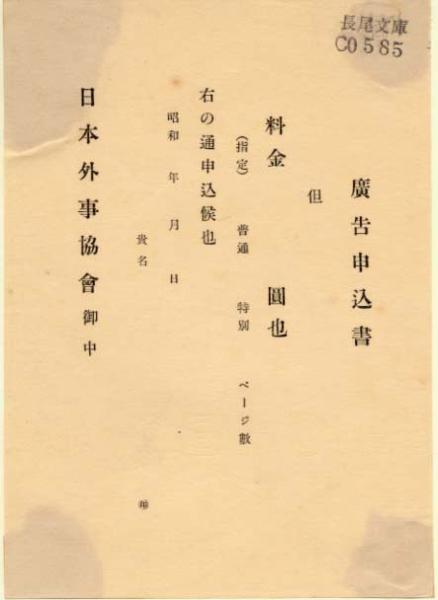 長尾文庫
C0585
廣告申込書
但
料金 圓也
(指定) 普通 特別 ページ數
右の通申込候也
昭和 年 月 日
貴名
日本外事協會御中